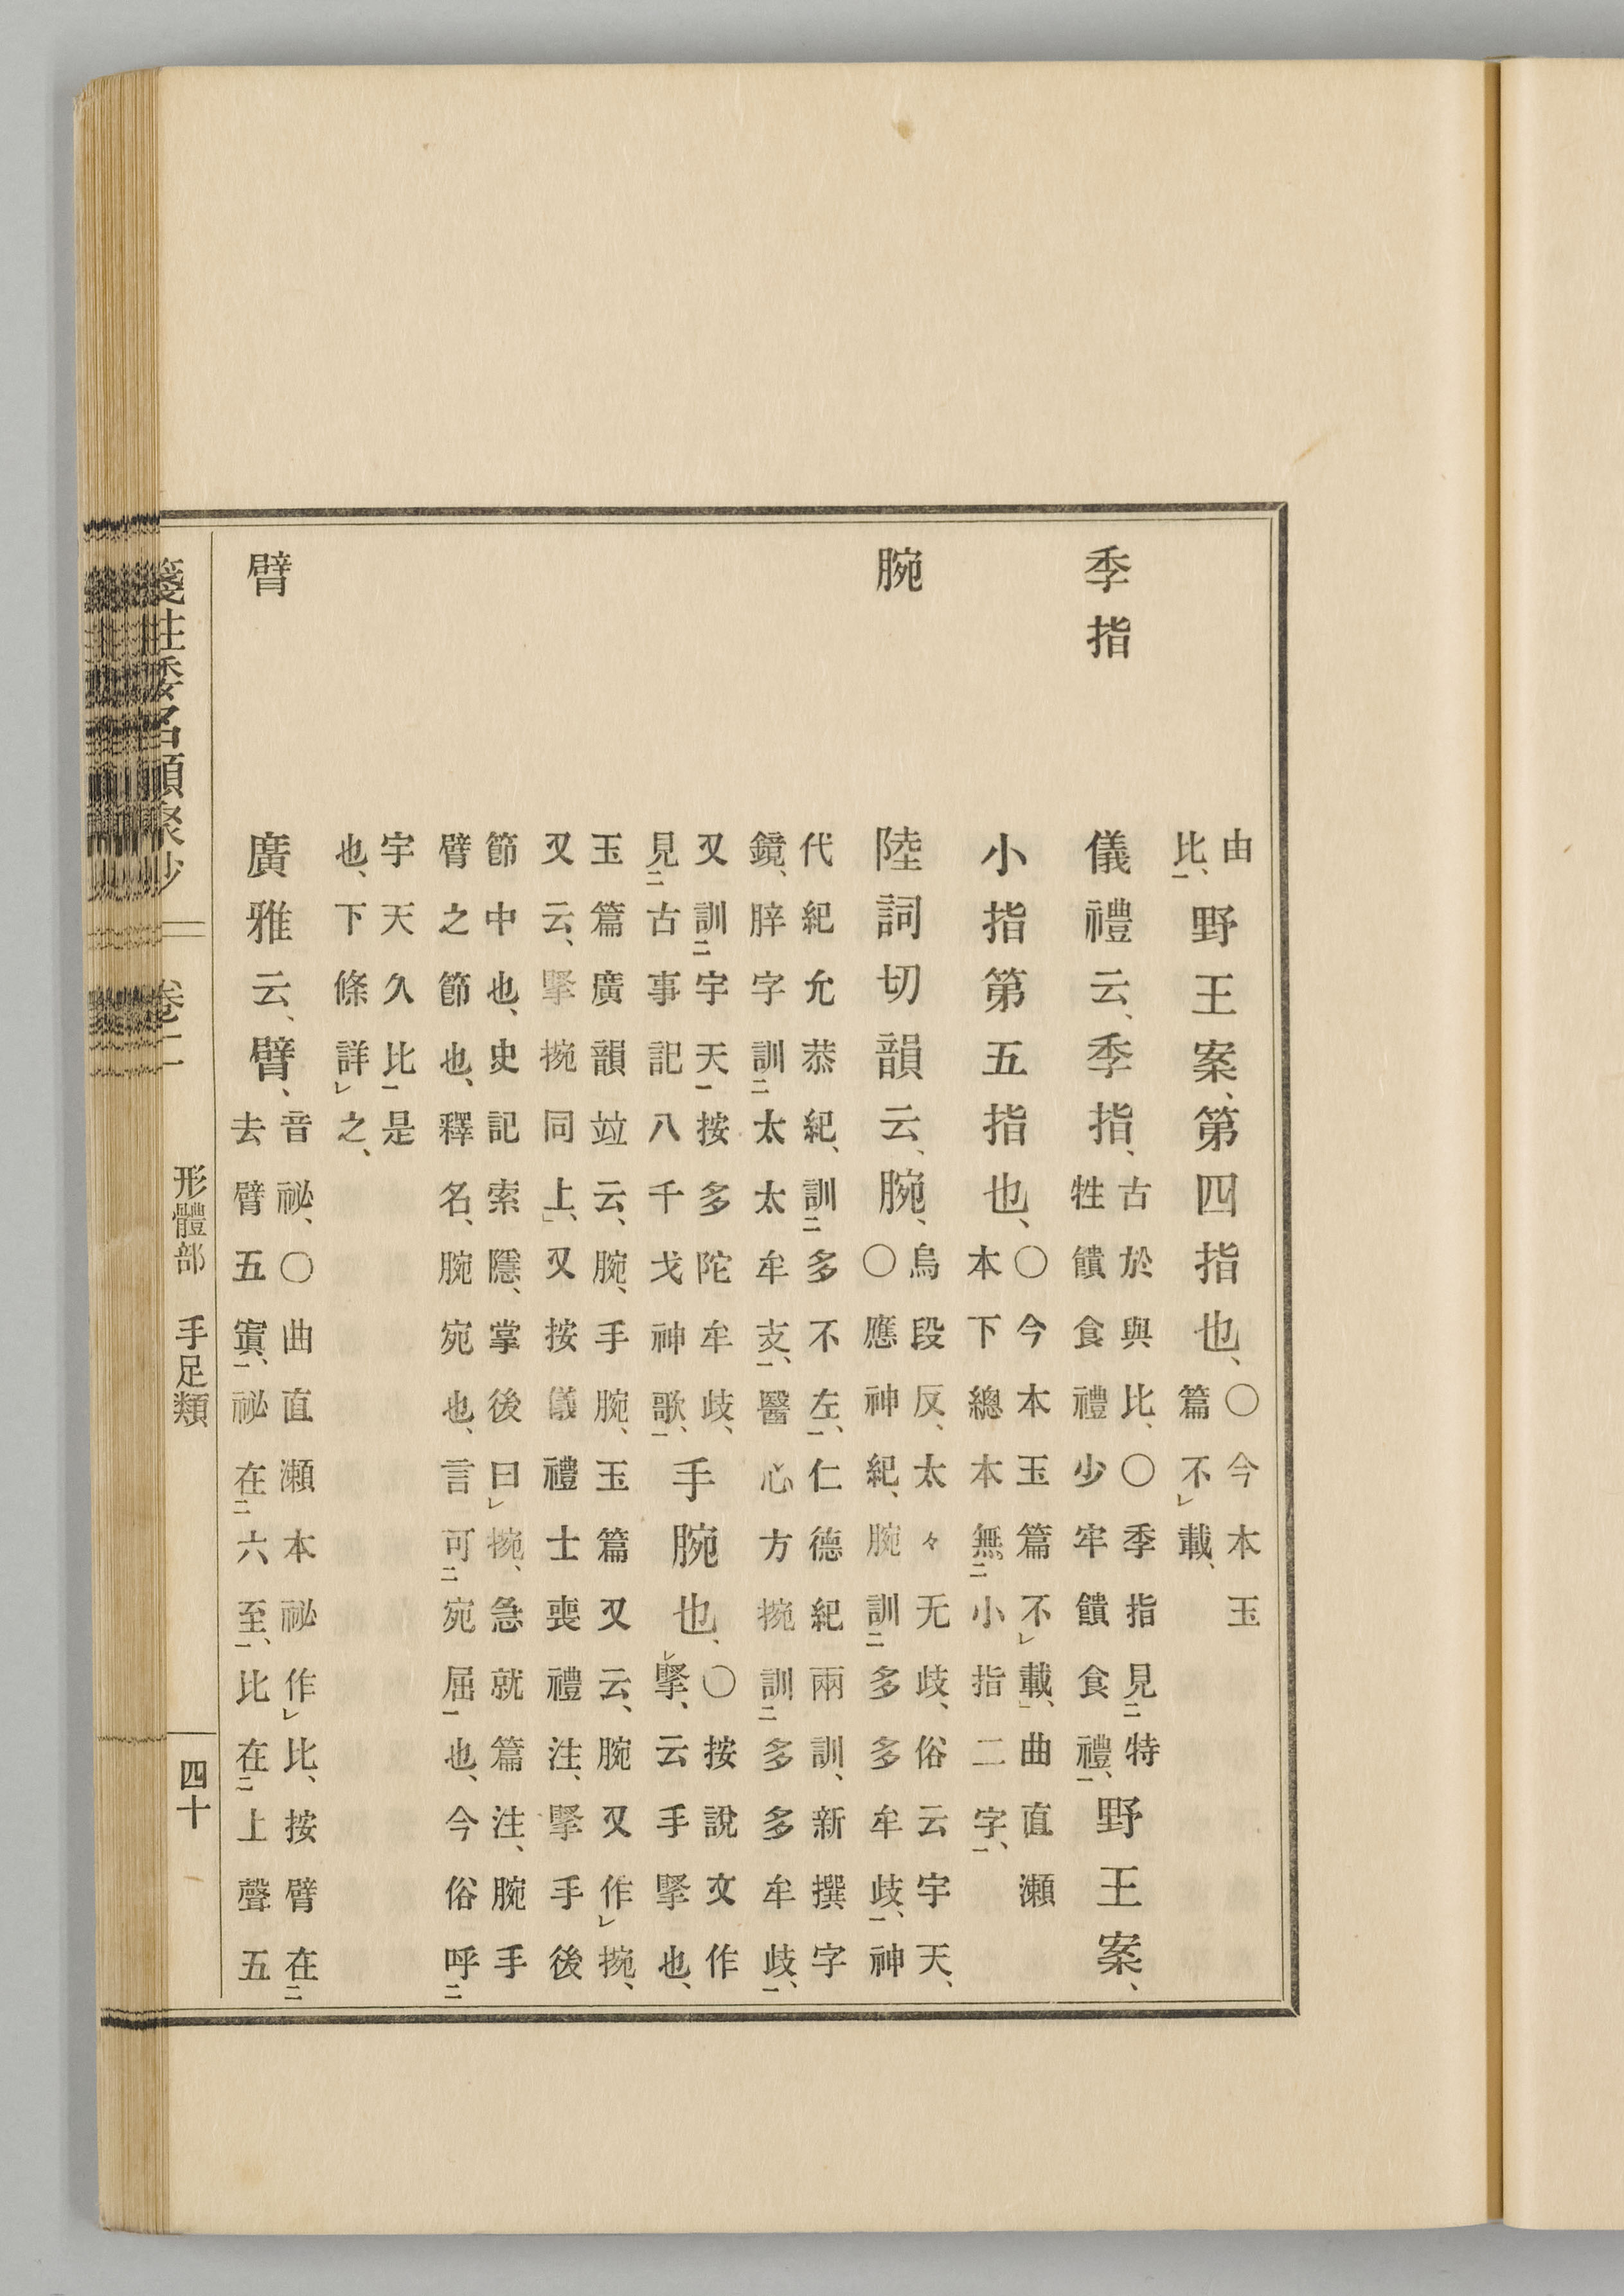 由比、野王案、第四指也、○今本玉篇不載、
季指 儀禮云、季指、古於與比、○季指見特牲饋食禮少牢饋食禮、野王案、
小指第五指也、○今本玉篇不載、曲直瀬本下總本無小指二字、
腕 陸詞切韻云、腕、烏段反、太々无歧、俗云宇天、○應神紀、腕訓多多牟歧、神
代紀允恭紀、訓多不左、仁德紀兩訓、新撰字鏡、脺字訓太太牟支、醫心方捥訓多多牟歧、
又訓宇天按多陀牟歧、見古事記八千戈神歌、手腕也、○按說文作掔、云手掔也、
玉篇廣韻竝云、腕、手腕、玉篇又云、腕又作捥、又云、掔捥同上、又按儀禮士喪禮注、掔手後
節中也、史記索隱、掌後曰捥、急就篇注、腕手臂之節也、釋名、腕宛也、言可宛屈也、今俗呼
宇天久比是也、下條詳之、
臂 廣雅云、臂、音祕、○曲直瀬本祕作比、按臂在去臂五寘、祕在六至、比在上聲五
箋注倭名類聚抄 卷二 形體部 手足類 四十